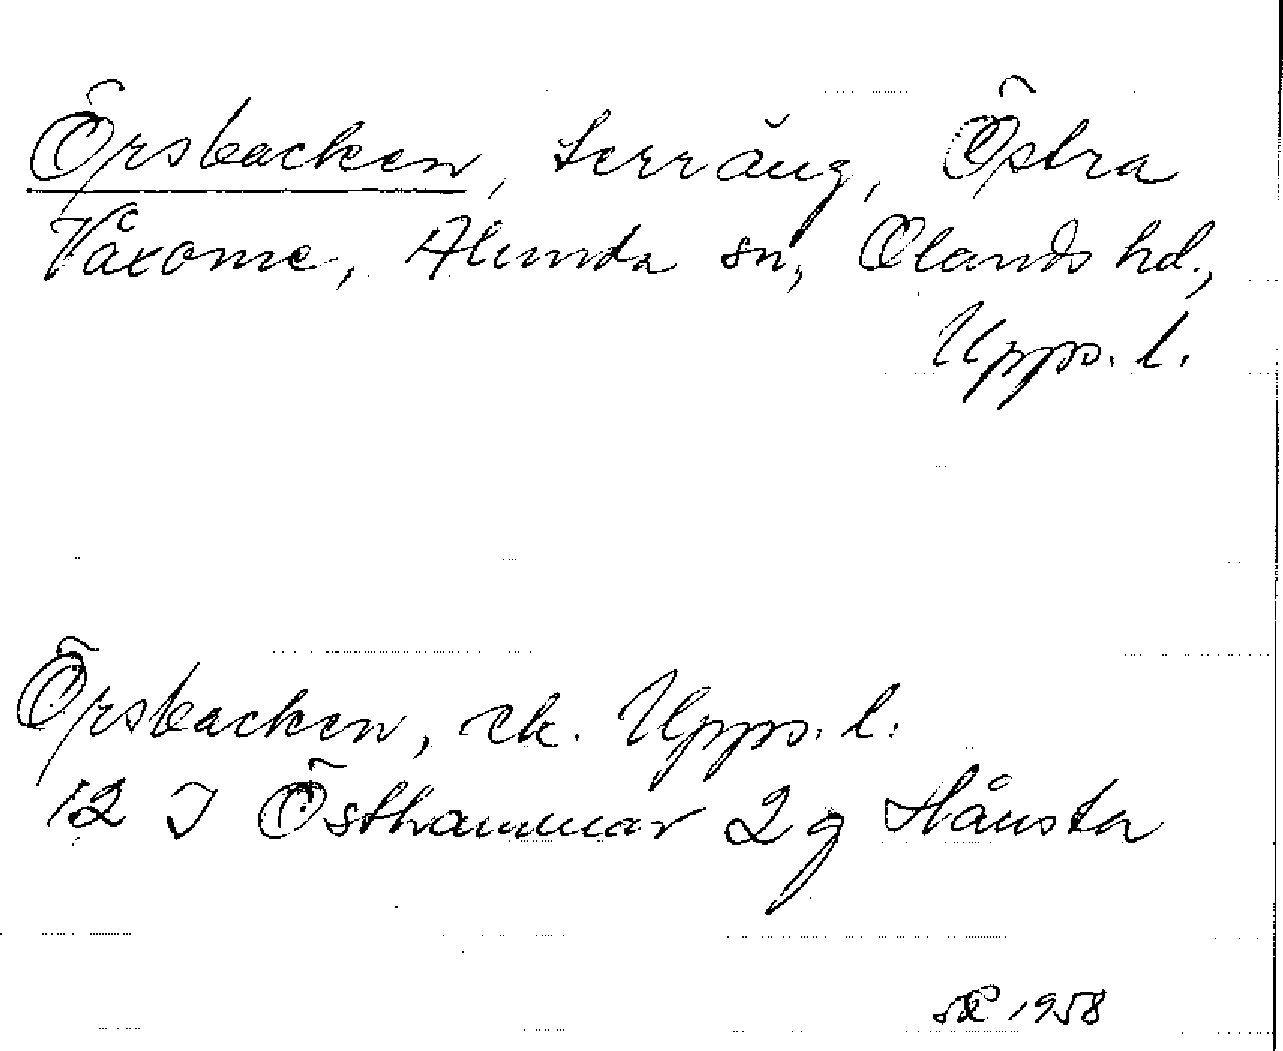 Örsbacken, terräng, Östra
Våxome, Alunda sn, Olands hd.,
Upps. l.
Örsbacken, ek. Upps. l.
12 I Östhammar 2 g Hånsta
1958